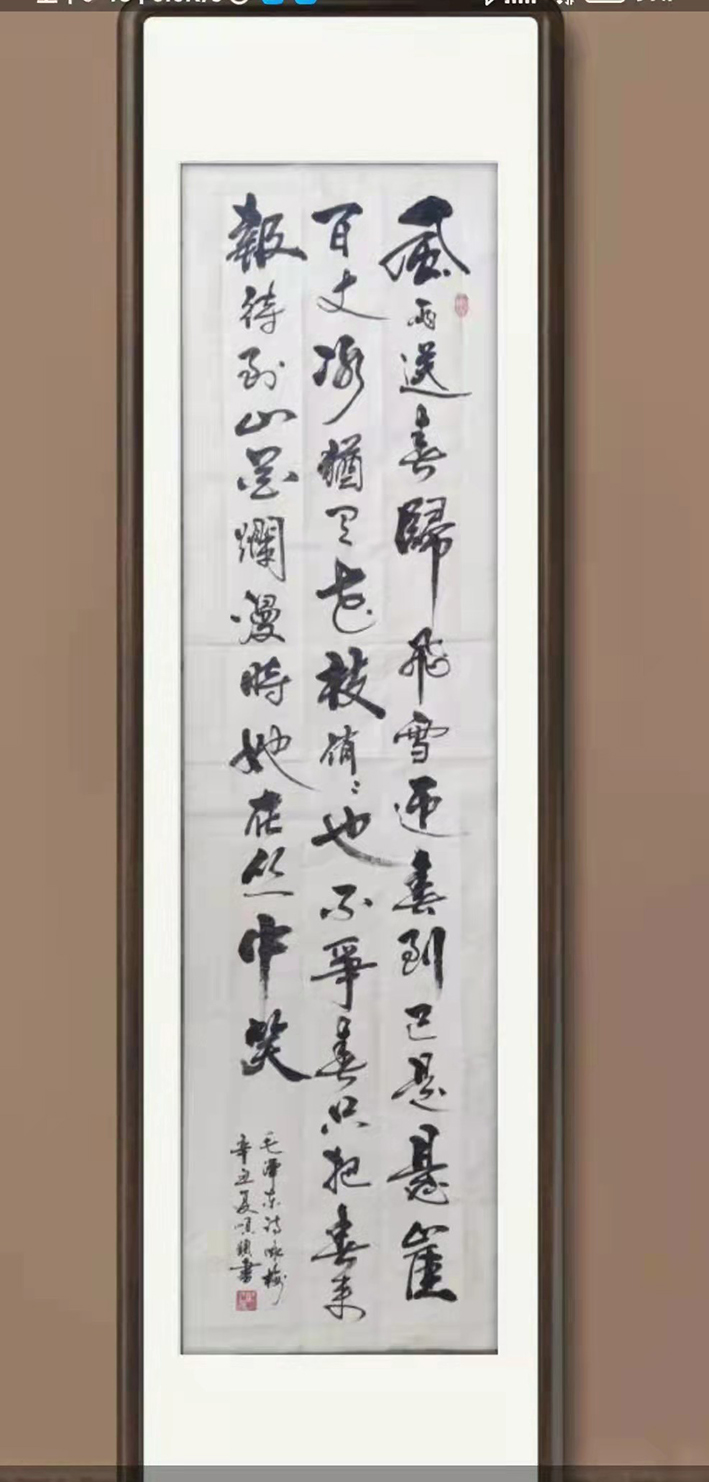 風雨送春歸飛雪迎春到已是懸崖
百丈冰猶有花枝俏々也不爭春只把春来
報待到山花爛漫時她在丛中笑
毛泽东诗咏梅
辛丑夏書